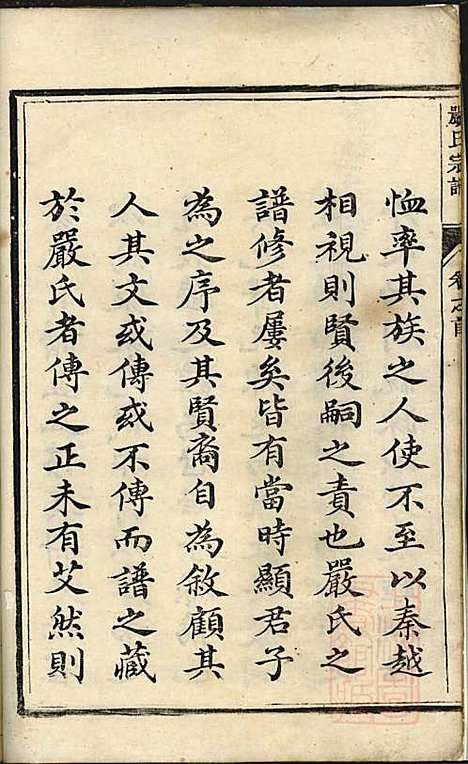 嚴氏宗譜
卷之首
恤率其族之人使不至以秦越
相視則賢後嗣之責也嚴氏之
譜修者屢矣皆有當時顯君子
為之序及其賢裔自為敘顧其
人其文或傳或不傳而譜之藏
於嚴氏者傳之正未有艾然則